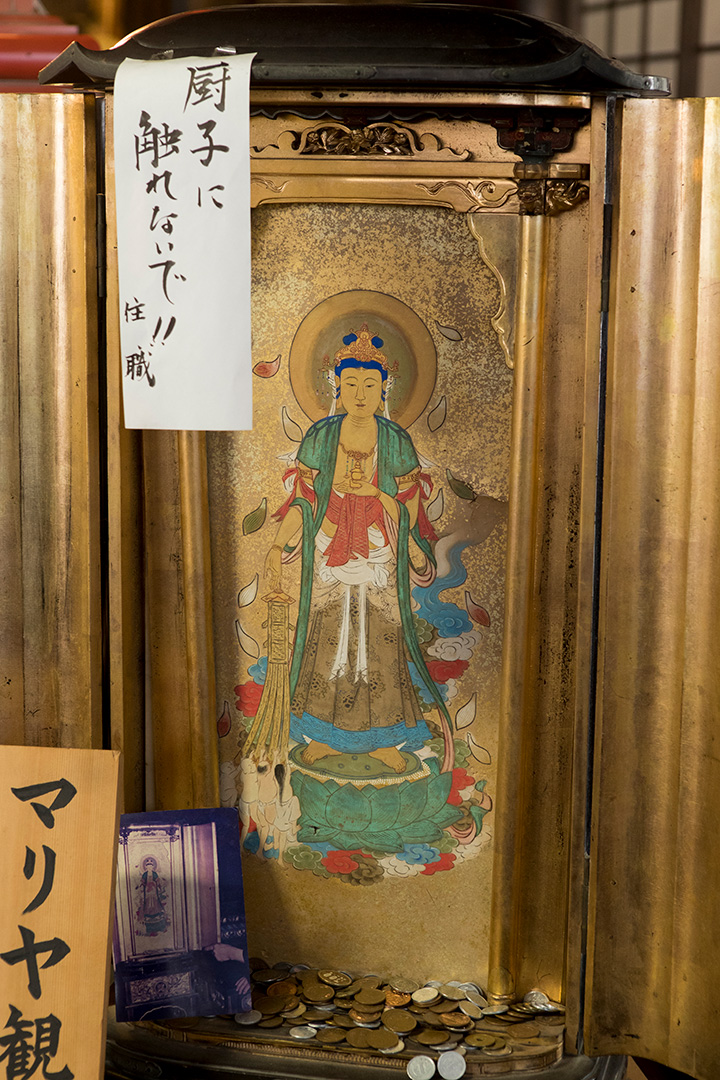 厨子に
触れないで!!
住職
マリヤ観